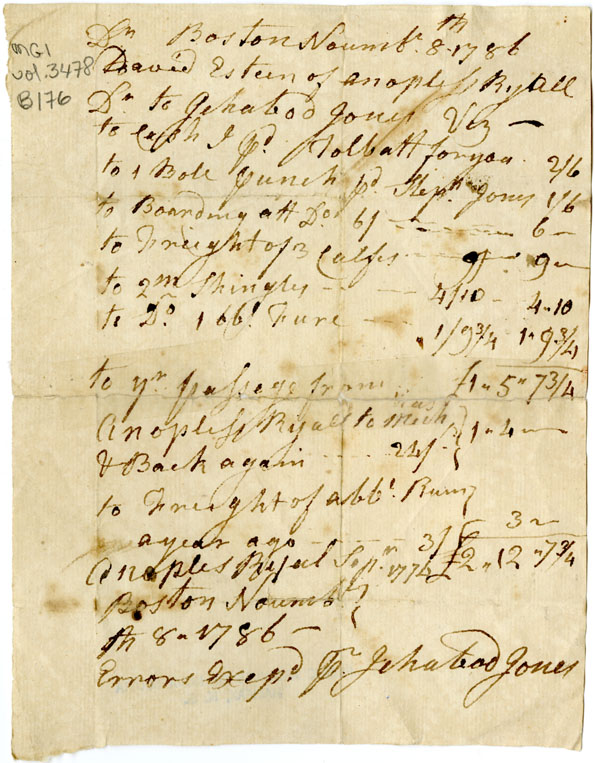 MG1
vol. 3478
B176
Dr Boston Novmbr 8th 1786
David Esteen of anopless Ryall
Dr to Jehabod Jones Viz —
to Cash I pd Tolbatt for you 2/6
to 1 Bole punch pd Stepn Jones 1/6
to Boarding att Do 6/ — 6 —
to Freight of 3 Calfes 9/ 9 —
to 2m Shingles — 4/10 — 4 " 10
to Do 1 bbl. Fure — 1/9 3/4 1 " 9 3/4
to yr passage from £1 " 5 " 7 3/4
Anopless Ryall to Mech
& Back again 24/ 1 " 4 " —
to Freight of a bbl. Rum
a year ago — 3/ 3 "
Anoples Ryal Sepr 1774 £2 " 12 " 7 3/4
Boston Novmbr
th 8 " 1786 —
Errors Exepd pr Jehabod Jones